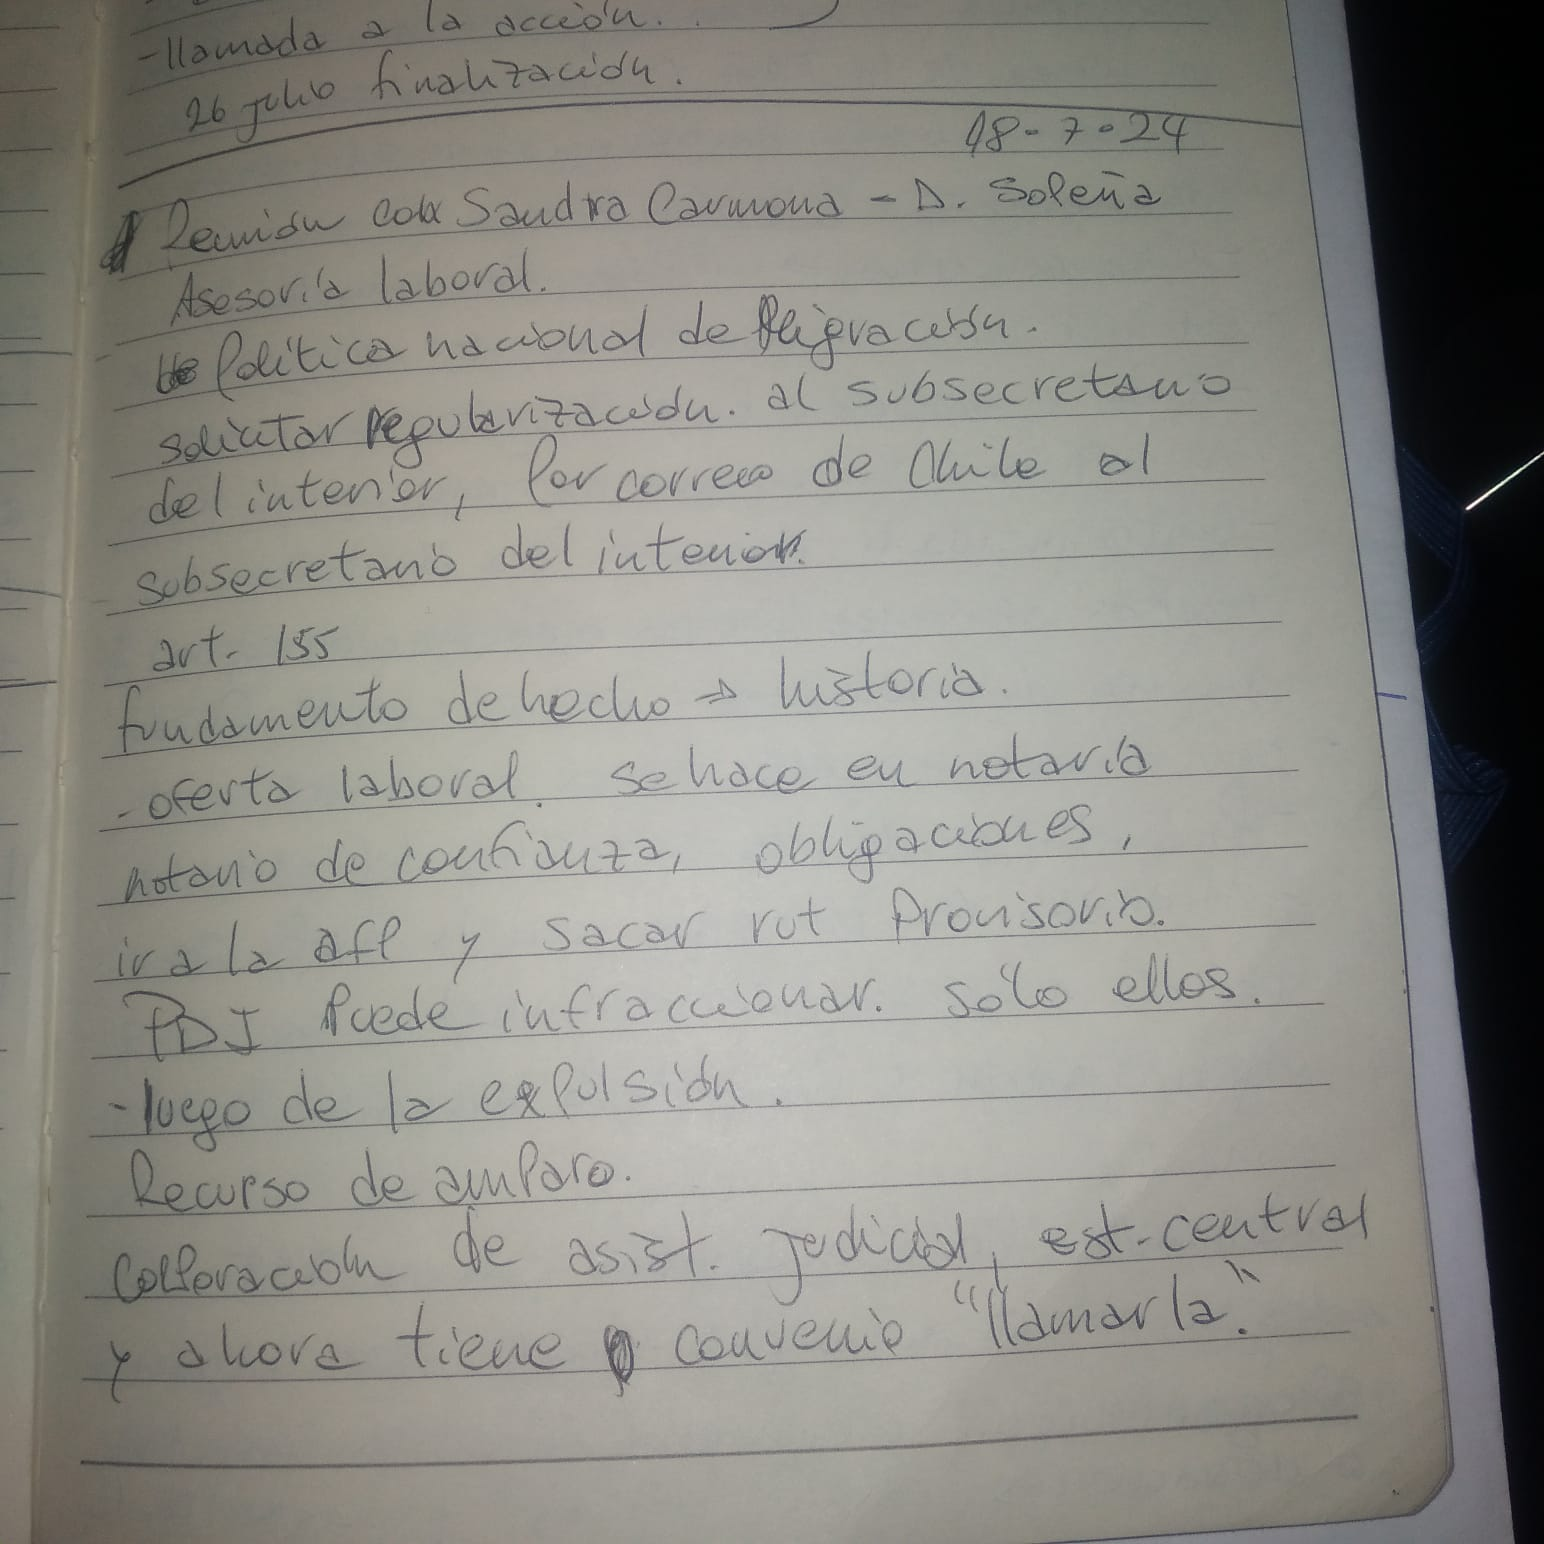 -llamada a la acción.
26 julio finalización.
18-7-24
Reunión con Sandra Carmona - D. Soleña
Asesoría laboral.
Política nacional de Migración.
solicitar regularización. al subsecretario
del interior, Por correo de Chile al
subsecretario del interior.
art. 155
fundamento de hecho → historia.
-oferta laboral. se hace en notaría
notario de confianza, obligaciones,
ir a la afp y sacar rut Provisorio.
PDI Puede infraccionar. sólo ellos.
-luego de la expulsión.
Recurso de amparo.
Corporación de asist. judicial, est-central
y ahora tiene convenio "llamarla."